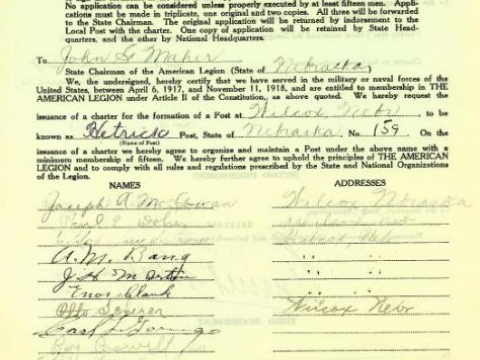 No application can be considered unless properly executed by at least fifteen men. Appli-
cations must be made in triplicate, one original and two copies. All three will be forwarded
to State Chairman. The original application will be returned by indorsement to the
Local Post with the charter. One copy of application will be retained by State Head-
quarters, and the other by National Headquarters.
To John G Maher
State Chairman of the American Legion (State of Nebraska)
We, the undersigned, hereby certify that we have served in the military or naval forces of the
United States, between April 6, 1917, and November 11, 1918, and are entitled to membership in THE
AMERICAN LEGION under Article II of the Constitution, as above quoted. We hereby request the
issuance of a charter for the formation of a Post at Wilcox Nebr to be
known as Hetrick Post, State of Nebraska No. 159. On the
(Name of Post)
issuance of a charter we hereby agree to organize and maintain a Post under the above name with a
minimum membership of fifteen. We hereby further agree to uphold the principles of THE AMERICAN
LEGION and to comply with all rules and regulations prescribed by the State and National Organizations
of the Legion.
NAMES ADDRESSES
Joseph A. McCowan Wilcox, Nebraska
A.M. Bang " "
J H Martin " "
Enos Clark " "
Otto Wilcox Nebr
Carl
Roy